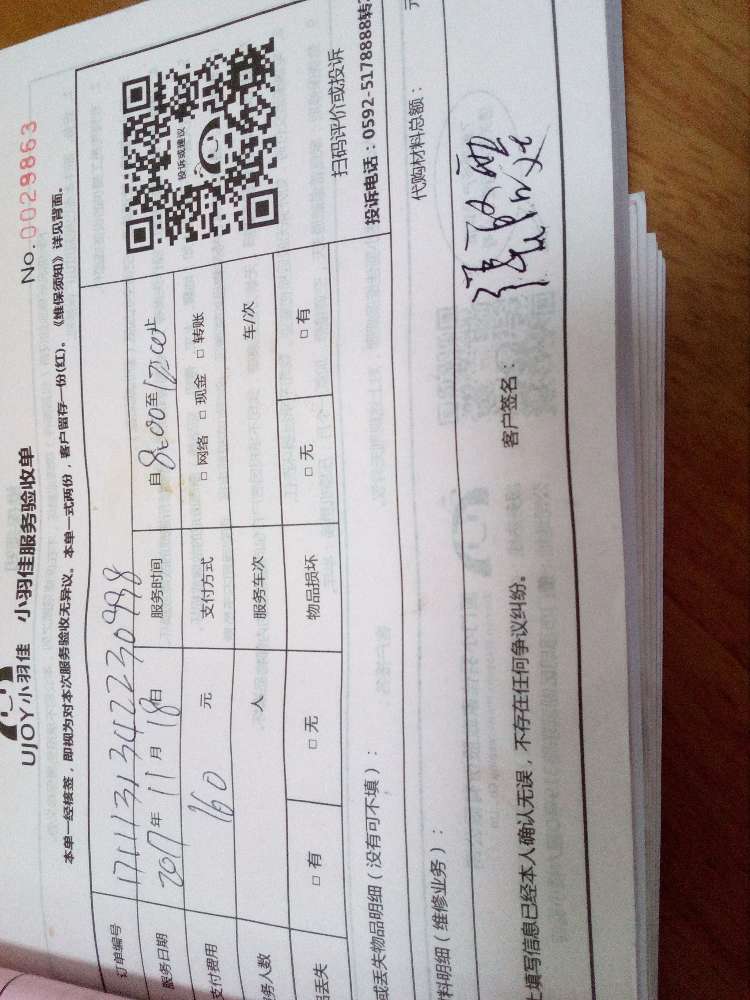 UJOY小羽佳 小羽佳服务验收单
No.0029863
本单一经核签，即视为对本次服务验收无异议。本单一式两份，客户留存一份(红)。《维保须知》详见背面。
订单编号 1711131342230998
服务日期 2017年 11月 18日 服务时间 自8:00至12:00止
支付费用 160 元 支付方式 □ 网络 □ 现金 □ 转账
务人数 人 服务车次 车/次
品丢失 □ 有 □ 无 物品损坏 □ 无 □ 有
投诉或建议
扫码评价或投诉
投诉电话：0592-5178888转
或丢失物品明细（没有可不填）：
料明细（维修业务）： 代购材料总额： 元
填写信息已经本人确认无误，不存在任何争议纠纷。 客户签名：